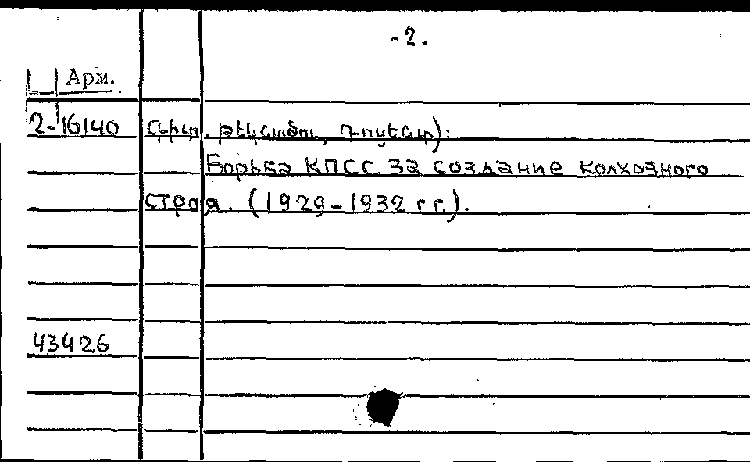 - 2 .
Арм.
2-16140 գիտ. թեկնածու, դոցենտ):
Борьба КПСС за создание колхозного
строя. (1929-1932 гг.).
43426